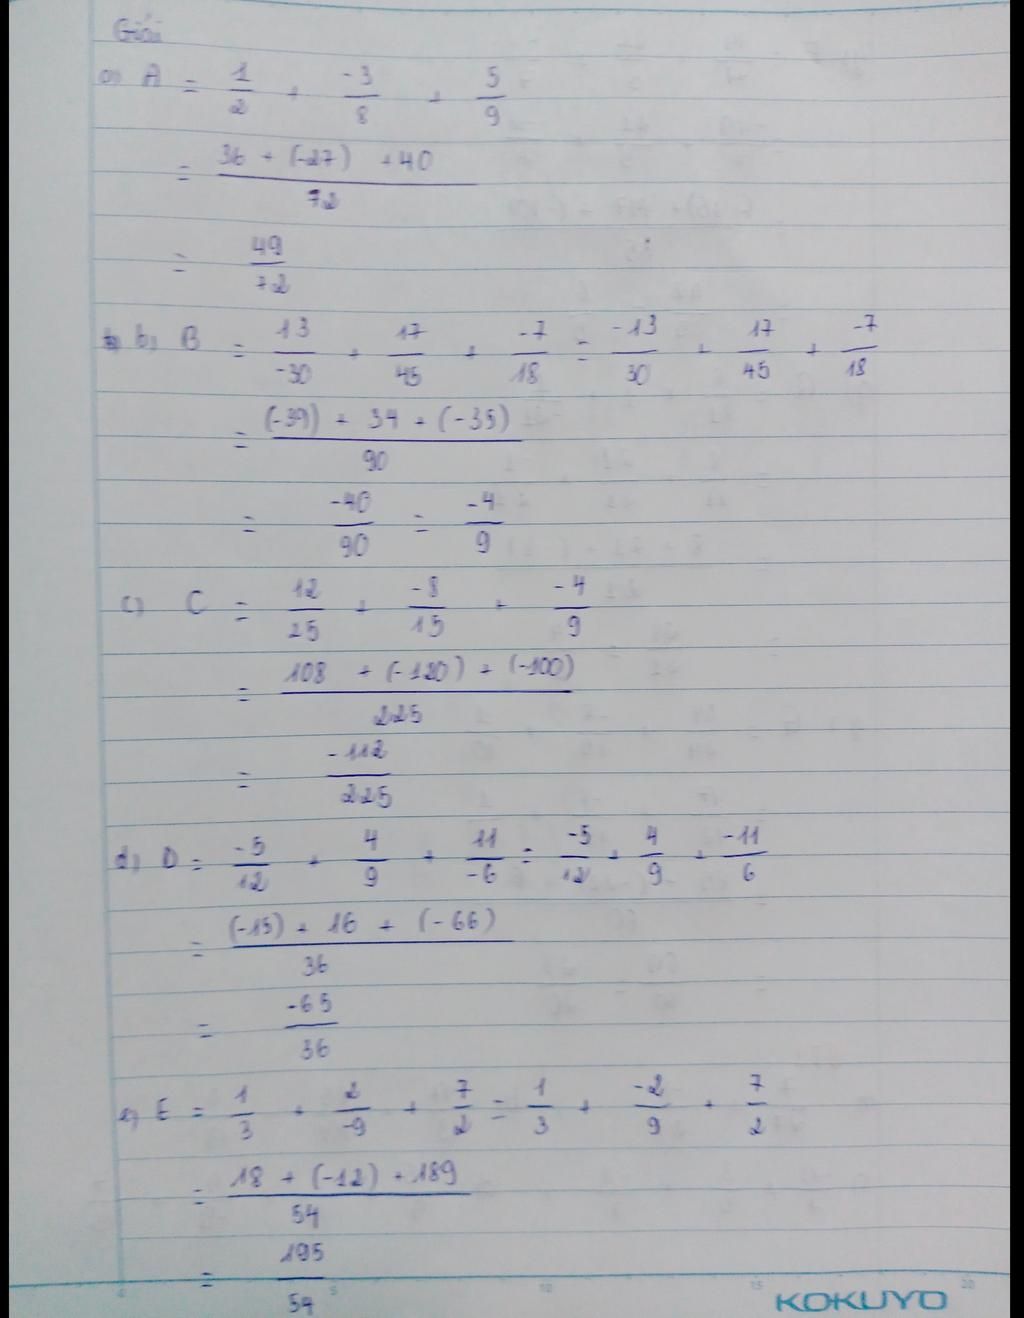 Giải
a) A = 1/2 + -3/8 + 5/9
= 36 + (-27) + 40 / 72
= 49/72
b) B = 13/-30 + 17/45 + -7/18 = -13/30 + 17/45 + -7/18
= (-39) + 34 + (-35) / 90
= -40/90 = -4/9
c) C = 12/25 + -8/15 + -4/9
= 108 + (-120) + (-100) / 225
= -112/225
d) D = -5/12 + 4/9 + 11/-6 = -5/12 + 4/9 + -11/6
= (-15) + 16 + (-66) / 36
= -65/36
e) E = 1/3 + 2/-9 + 7/2 = 1/3 + -2/9 + 7/2
= 18 + (-12) + 189 / 54
= 195/54
0 5 10 15 20
KOKUYO